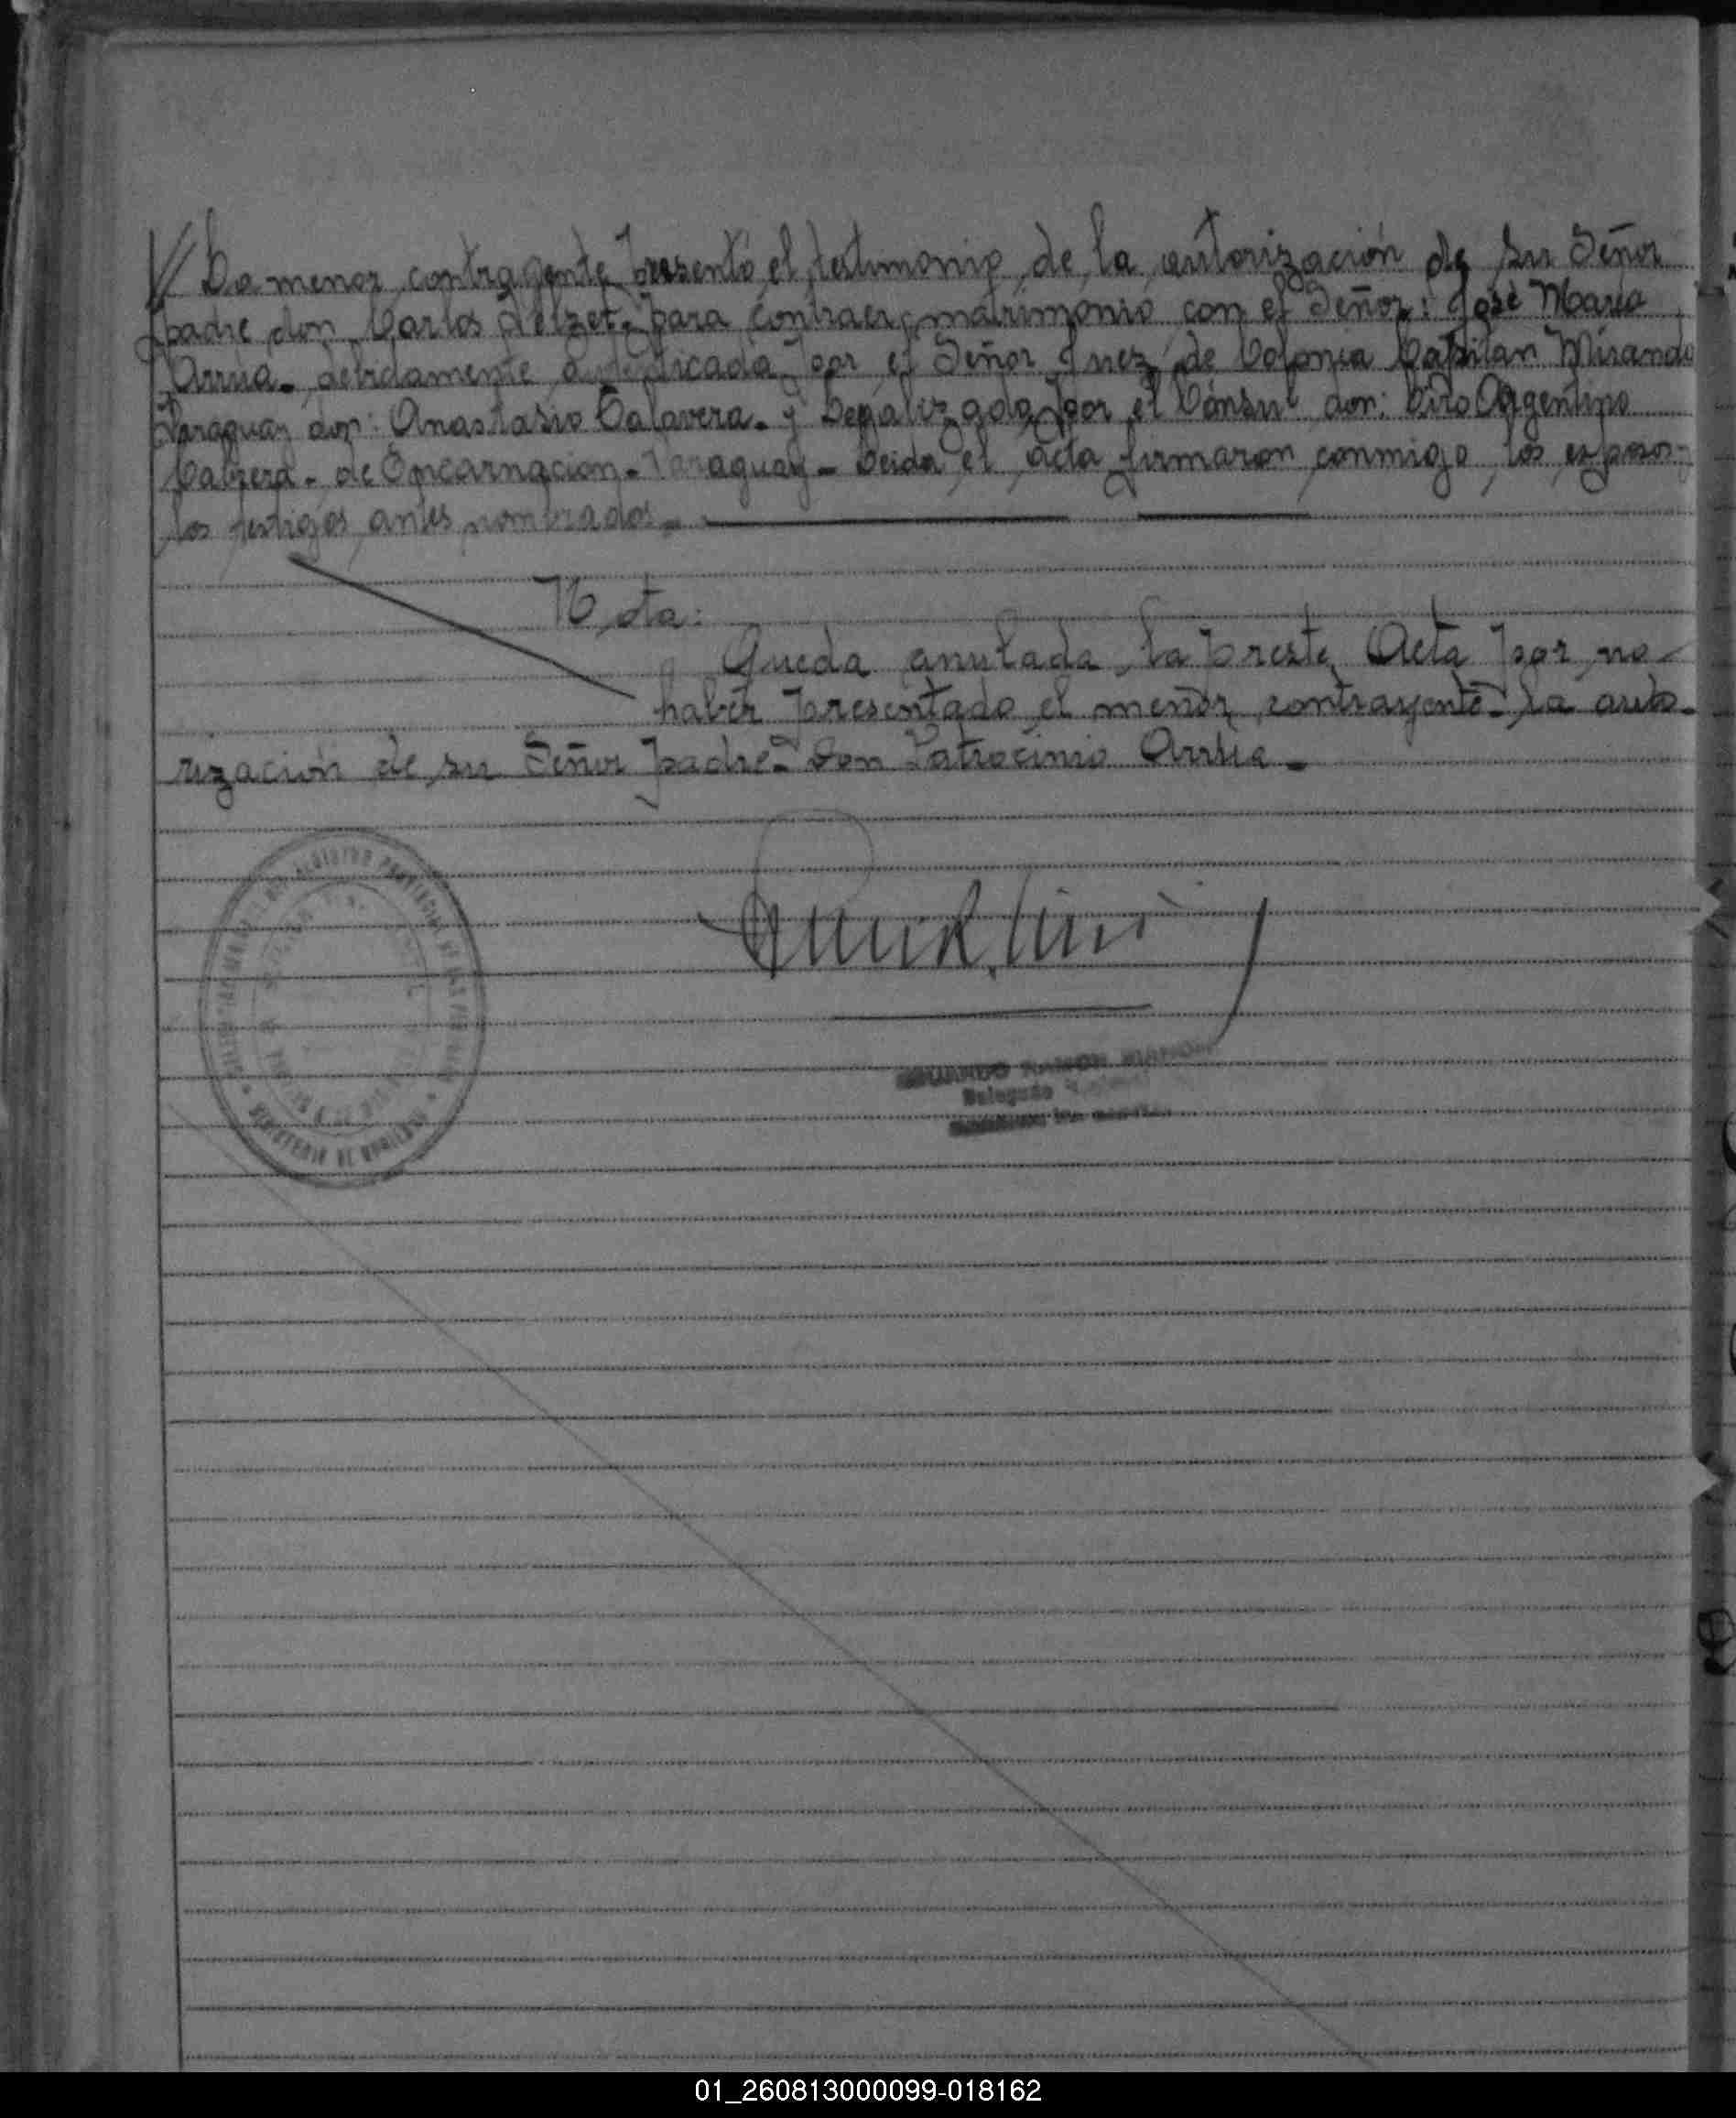 // La menor contragente presentó el testimonio de la autorización de su Señor
padre don Carlos Delzet. para contraer matrimonio con el Señor: José María
Arrúa. debidamente autenticada por el Señor Juez de Colonia Capitan Miranda
Paraguay don: Anastasio Talavera. y Legalizada por el Cónsul don: Ciro Argentino
Cabrera. de Encarnacion. Paraguay. Leida el acta firmaron conmigo los esposos
los testigos antes nombrados.
Nota:
Queda anulada la preste Acta por no
haber presentado el menor contrayente la auto-
rización de su Señor padre. Don Patrocinio Arrúa.
RAMON
Delegado
01_260813000099-018162